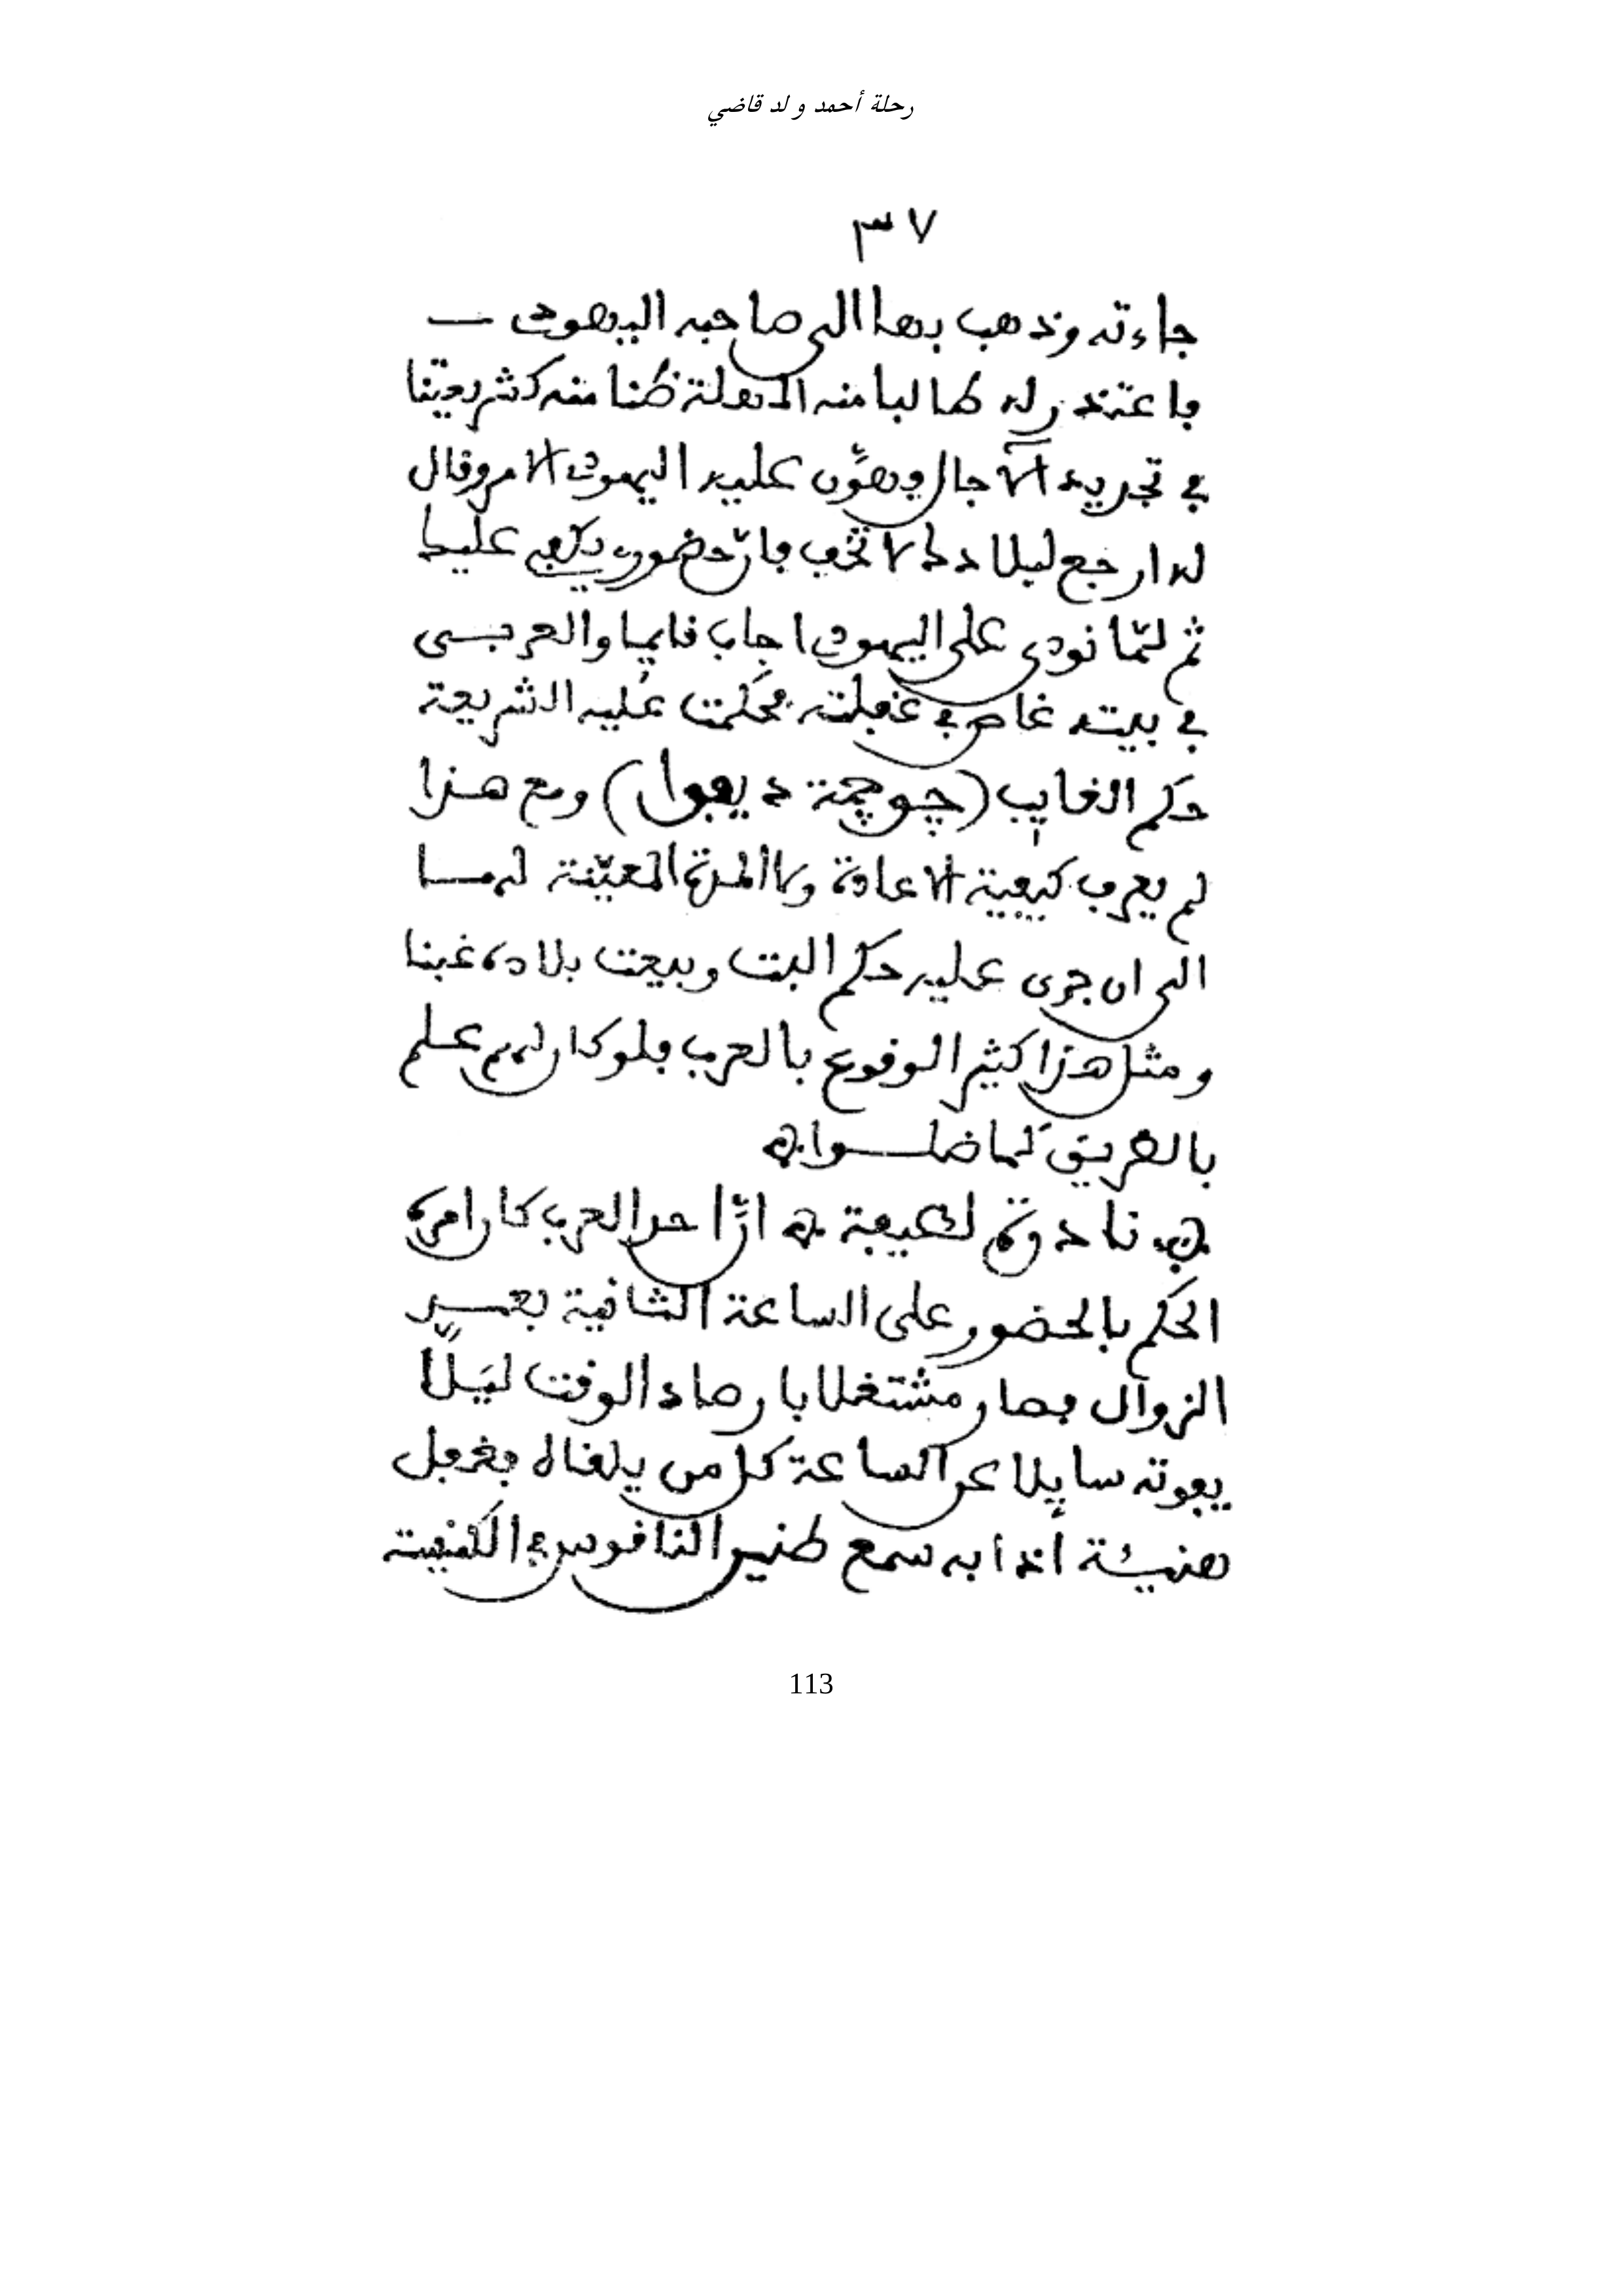 رحلة أحمد ولد قاضي
٣٧
جاءته وذهب بها الى صاحبه اليهودي
فاعتذر له طالبا منه المهلة ظنا منه كشريعتنا
في تجريد الآجال وهوّن عليه اليهودي الامر وقال
له ارجع لبلادك لا تخف فانّ حضوري يكفي عليك
ثم لمّا نودي على اليهودي اجاب قايما والعربي
في بيته غاص في غفلته فحكمت عليه الشريعة
حكم الغايب (جوجمة ديفول) ومع هذا
لم يعرف كيفية الاعادة ولا المدة المعيّنة لهما
الى ان جرى عليه حكم البت وبيعت بلاده غبنا
ومثل هذا كثير الوقوع بالعرب فلو كان لهم علم
بالطريق لما ضلوا
نادرة لطيفة انّ احد العرب كان امره
الحكم بالحضور على الساعة الثانية بعيد
الزوال فصار مشتغلا بارصاد الوقت ليلّا
يفوته سايلا عن الساعة كل من يلقاه فغفل
هنيئة اذا به سمع طنين الناقوس في الكنيسة
113